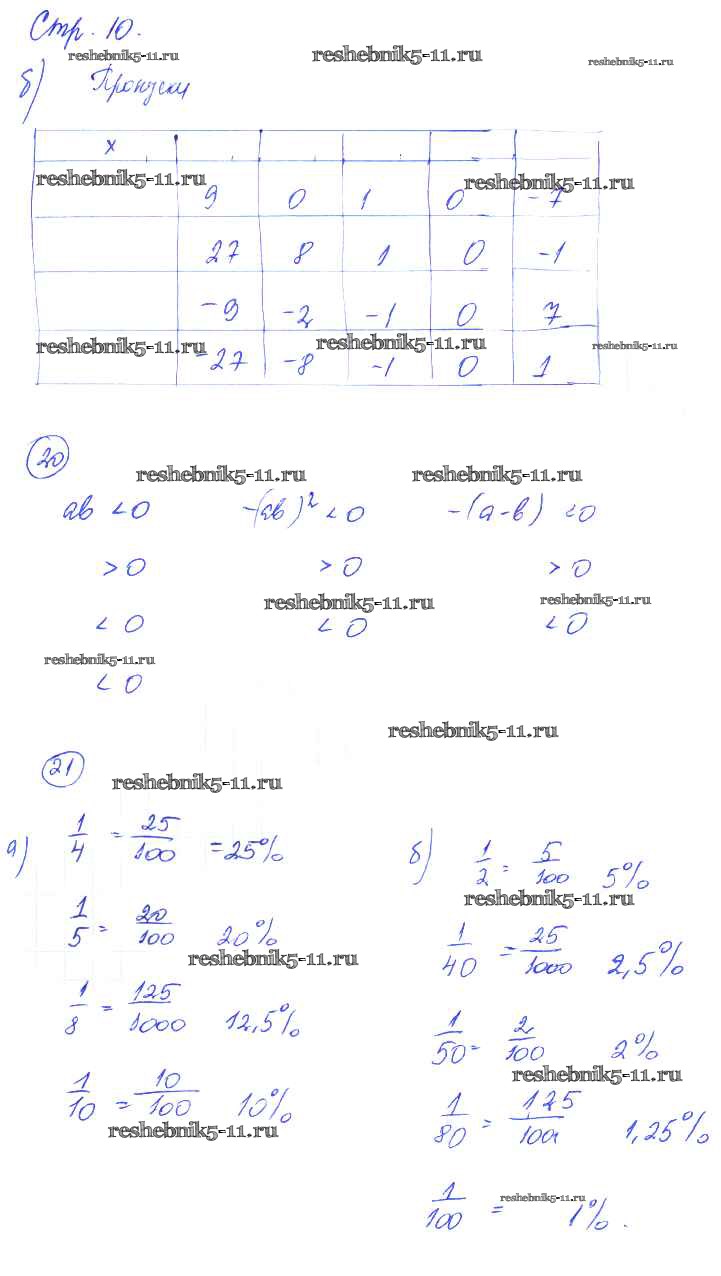 Стр. 10.
reshebnik5-11.ru reshebnik5-11.ru reshebnik5-11.ru
б) Пропуски
x
reshebnik5-11.ru reshebnik5-11.ru
9 0 1 0 -7
27 8 1 0 -1
-9 -2 -1 0 7
reshebnik5-11.ru reshebnik5-11.ru reshebnik5-11.ru
-27 -8 -1 0 1
20
reshebnik5-11.ru reshebnik5-11.ru
ab < 0 -(ab)² < 0 -(a-b) < 0
> 0 > 0 > 0
reshebnik5-11.ru reshebnik5-11.ru
< 0 < 0 < 0
reshebnik5-11.ru
< 0
reshebnik5-11.ru
21
reshebnik5-11.ru
а) 1/4 = 25/100 = 25%
1/5 = 20/100 20%
reshebnik5-11.ru
1/8 = 125/1000 12,5%
1/10 = 10/100 10%
reshebnik5-11.ru
б) 1/2 = 5/100 5%
reshebnik5-11.ru
1/40 = 25/1000 2,5%
1/50 = 2/100 2%
reshebnik5-11.ru
1/80 = 1,25/100 1,25%
reshebnik5-11.ru
1/100 = 1%.